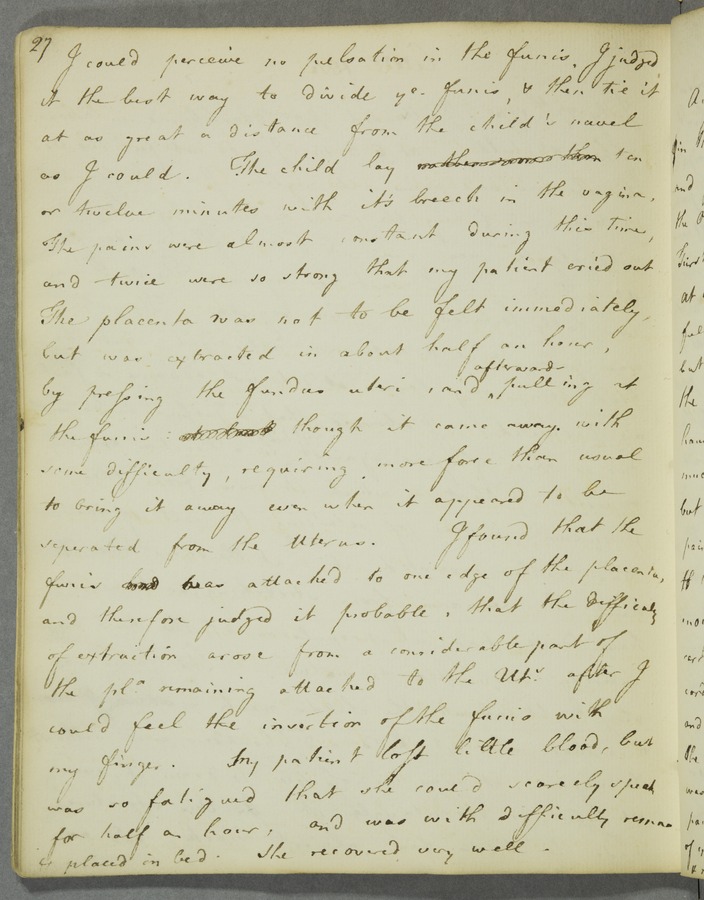 27
I could perceive no pulsation in the funis, I judged
it the best way to divide ye. funis, & then tie it
at as great a distance from the child's navel
as I could. The child lay ten
or twelve minutes with it's breech in the vagina.
The pains were almost constant during this time,
and twice were so strong that my patient cried out
The placenta was not to be felt immediately,
but was extracted in about half an hour,
by pressing the fundus uteri, and afterwards pulling at
the funis: though it came away with
some difficulty, requiring more force than usual
to bring it away even when it appeared to be
seperated from the Uterus. I found that the
funis was attached to one edge of the placenta,
and therefore judged it probable, that the difficulty
of extraction arose from a considerable part of
the pla. remaining attached to the Uts. after I
could feel the insertion of the funis with
my finger. My patient lost little blood, but
was so fatigued that she could scarcely speak
for half an hour, and was with difficulty
placed in bed. She recovered very well.